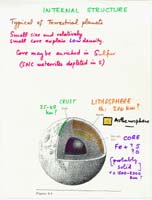 INTERNAL STRUCTURE
Typical of Terrestrial planets
Small size and relatively
small core explain low density.
Core maybe enriched in Sulfur
(SNC meteorites depleted in S)
CRUST
LITHOSPHERE
km?
km?
Asthenosphere
CORE
Fe + ?
(probably
solid)
km?